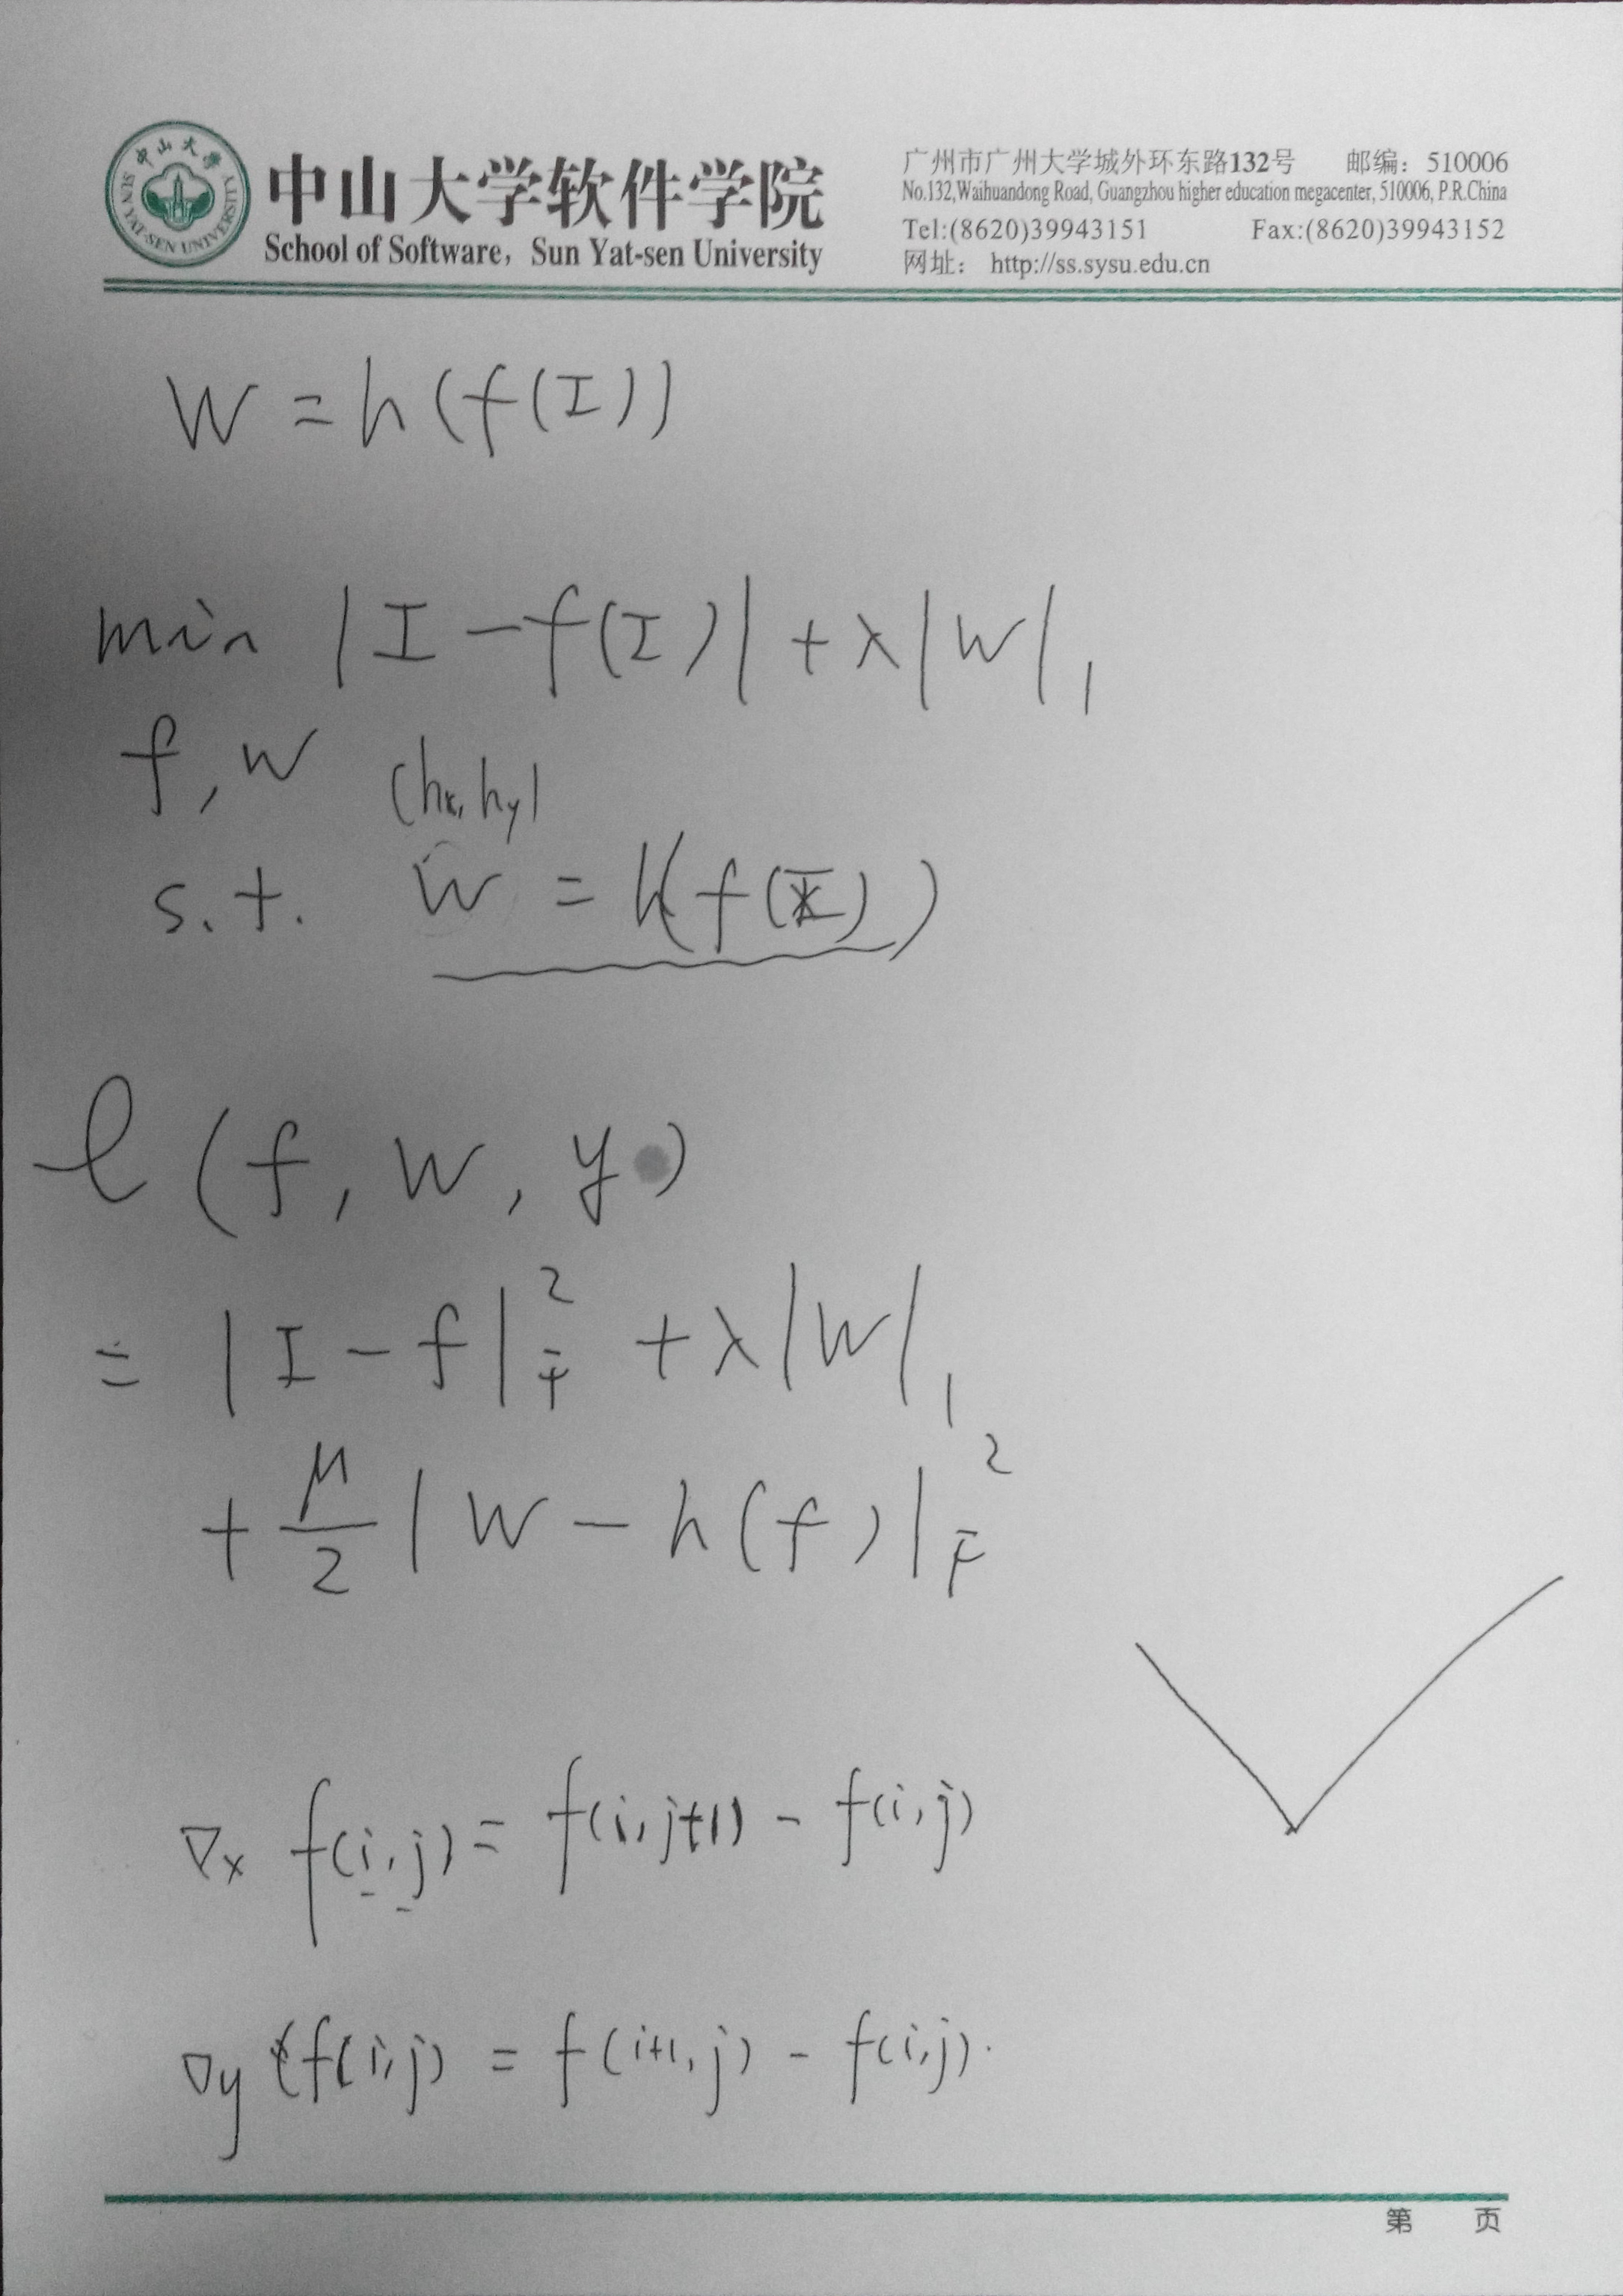 中山大学
SUN YAT-SEN UNIVERSITY
中山大学软件学院
School of Software, Sun Yat-sen University
广州市广州大学城外环东路132号 邮编：510006
No.132,Waihuandong Road, Guangzhou higher education megacenter, 510006, P.R.China
Tel:(8620)39943151 Fax:(8620)39943152
网址： http://ss.sysu.edu.cn
W = h(f(I))
min |I - f(I)| + λ|W|₁
f, w (hx, hy)
s.t. W = h(f(I))
ℓ(f, W, y)
= |I - f|_F^2 + λ|W|₁
+ μ/2 |W - h(f)|_F^2
∇x f(i,j) = f(i,j+1) - f(i,j)
∇y f(i,j) = f(i+1,j) - f(i,j).
第 页